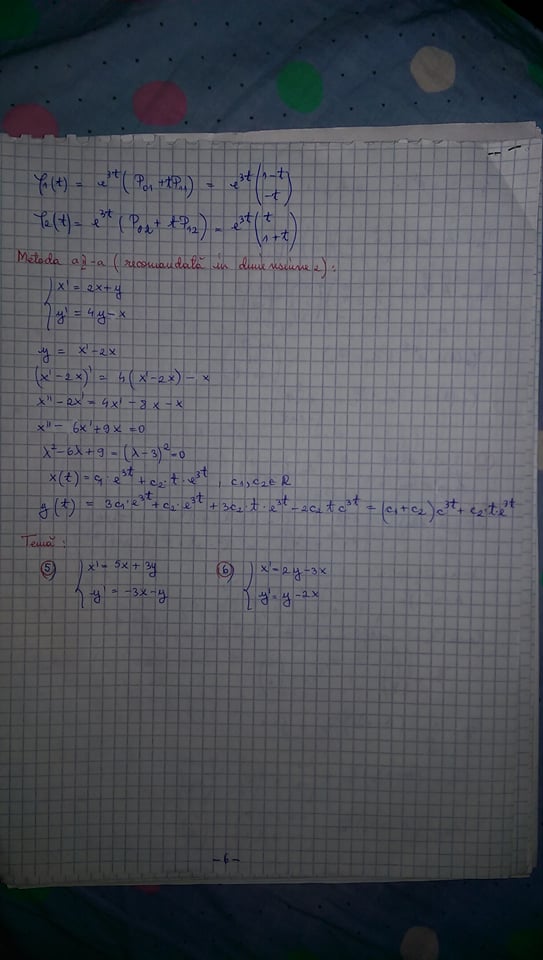 φ₁(t) = e^{3t} (P₀₁ + tP₁₁) = e^{3t} (1-t / -t)
φ₂(t) = e^{3t} (P₀₂ + tP₁₂) = e^{3t} (t / 1+t)
Metoda a II-a (recomandată în dimensiune 2):
{ x' = 2x+y
y' = 4y-x
y = x'-2x
(x'-2x)' = 4(x'-2x) - x
x''-2x' = 4x' - 8x - x
x'' - 6x' + 9x = 0
λ²-6λ+9 = (λ-3)² = 0
x(t) = c₁·e^{3t} + c₂·t·e^{3t}, c₁,c₂ ∈ R
y(t) = 3c₁·e^{3t} + c₂·e^{3t} + 3c₂·t·e^{3t} - 2c₂ t e^{3t} = (c₁+c₂) e^{3t} + c₂·t·e^{3t}
Temă:
⑤ { x' = 5x + 3y ⑥ { x' = 2y-3x
y' = -3x-y y' = y-2x
-6-